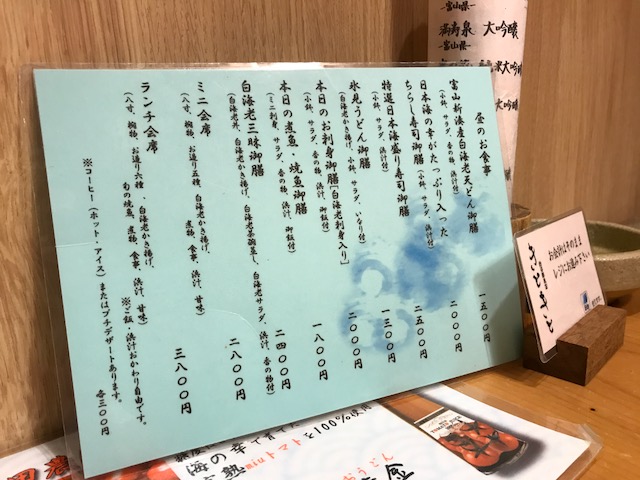 昼のお食事
富山新湊産白海老天どん御膳
(小鉢、サラダ、香の物、浜汁付)
一五〇〇円
日本海の幸がたっぷり入った
ちらし寿司御膳(小鉢、サラダ、浜汁付)
二〇〇〇円
特選日本海盛り寿司御膳
(小鉢、サラダ、浜汁付)
二五〇〇円
氷見うどん御膳
(白海老かき揚げ、小鉢、サラダ、いなり付)
一三〇〇円
本日のお刺身御膳「白海老刺身入り」
(小鉢、サラダ、香の物、浜汁、御飯付)
二〇〇〇円
本日の煮魚・焼魚御膳
(ミニ刺身、サラダ、香の物、浜汁、御飯付)
一八〇〇円
白海老三昧御膳
(白海老丼、白海老かき揚げ、白海老茶碗蒸し、白海老サラダ、浜汁、香の物付)
二四〇〇円
ミニ会席
(八寸、椀物、お造り五種、白海老かき揚げ、
煮物、食事、浜汁、甘味)
二八〇〇円
ランチ会席
(八寸、椀物、お造り六種、白海老かき揚げ、
旬の焼魚、煮物、食事、浜汁、甘味)
三八〇〇円
※ご飯・浜汁おかわり自由です。
※コーヒー(ホット・アイス)またはプチデザートあります。
各三〇〇円
富山県
満寿泉 大吟醸
富山県
大吟醸
お会計はそのまま
レジにお進み下さい
きときと
海の幸で育てた
miuトマトを100%使用
うどん